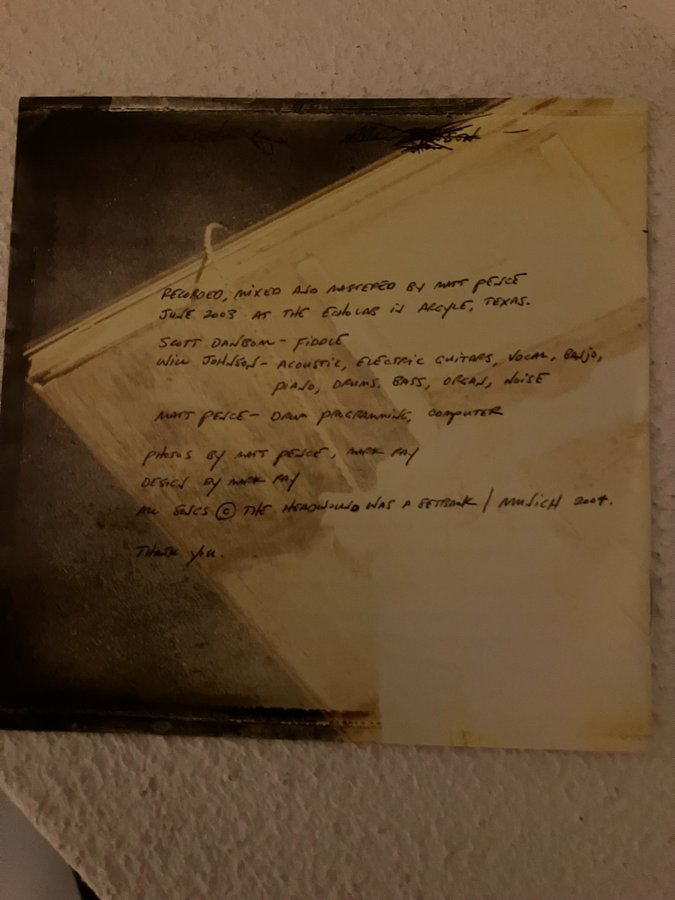 RECORDED, MIXED AND MASTERED BY MATT PENCE
JUNE 2003 AT THE ECHOLAB IN ARGYLE, TEXAS.
SCOTT DANBOM - FIDDLE
WILL JOHNSON - ACOUSTIC, ELECTRIC GUITARS, VOCAL, BANJO,
PIANO, DRUMS, BASS, ORGAN, NOISE
MATT PENCE - DRUM PROGRAMMING, COMPUTER
PHOTOS BY MATT PENCE, MARK RAY
DESIGN BY MARK RAY
ALL SONGS © THE HEADWOUND WAS A SETBACK / MUNICH 2004.
THANK YOU.